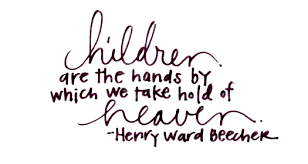 children
are the hands by
which we take hold of
heaven.
-Henry Ward Beecher